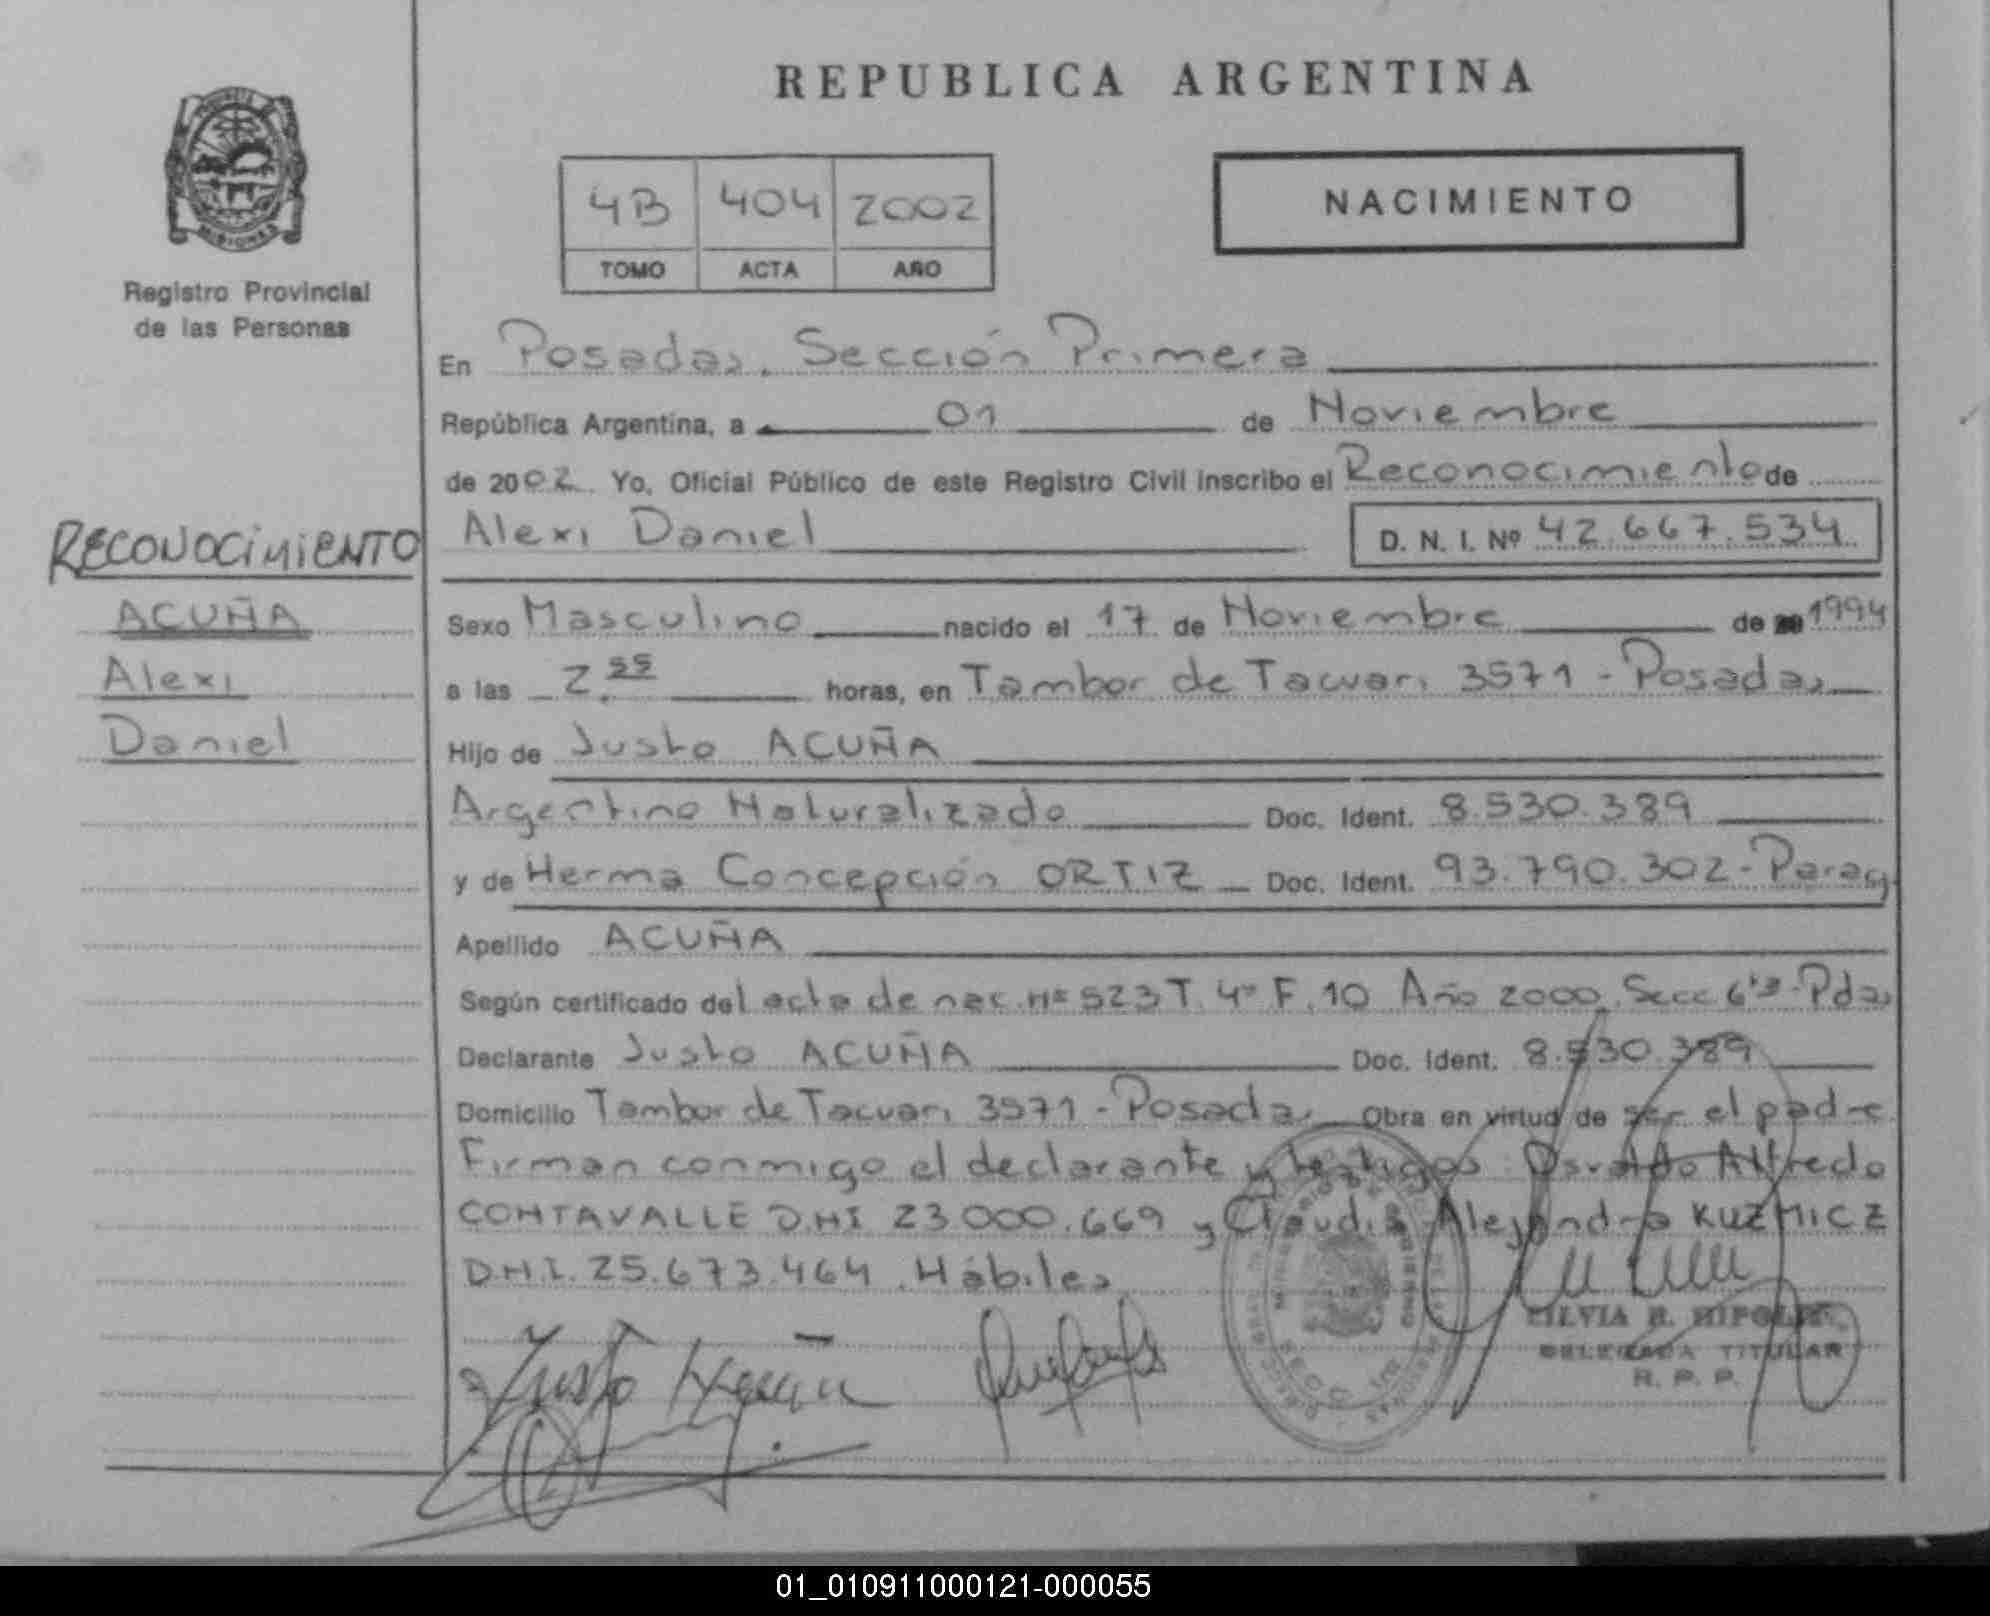 REPUBLICA ARGENTINA
MISIONES
Registro Provincial
de las Personas
4B 404 2002
TOMO ACTA AÑO
NACIMIENTO
En Posadas, Sección Primera
República Argentina, a 01 de Noviembre
de 2002 Yo, Oficial Público de este Registro Civil inscribo el Reconocimiento de
Alexi Daniel D. N. I. Nº 42.667.534
RECONOCIMIENTO
ACUÑA
Alexi
Daniel
Sexo Masculino nacido el 17 de Noviembre de 1994
a las 2.55 horas, en Tambor de Tacuari 3571 - Posadas
Hijo de Justo ACUÑA
Argentino Naturalizado Doc. Ident. 8.530.389
y de Herma Concepción ORTIZ Doc. Ident. 93.790.302 - Parag
Apellido ACUÑA
Según certificado del acta de nac. Nº 523 T. 4º F. 10 Año 2000 Secc 6ta - Pdas
Declarante Justo ACUÑA Doc. Ident. 8.530.389
Domicilio Tambor de Tacuari 3571 - Posadas Obra en virtud de ser el padre
Firman conmigo el declarante y testigos: Osvaldo Alfredo
CONTAVALLE D.NI 23.000.669 y Claudia Alejandra KUZMICZ
D.N.I. 25.673.464. Hábiles
Justo Acuña
SILVIA R.
DELEGADA TITULAR
R. P. P.
01_010911000121-000055